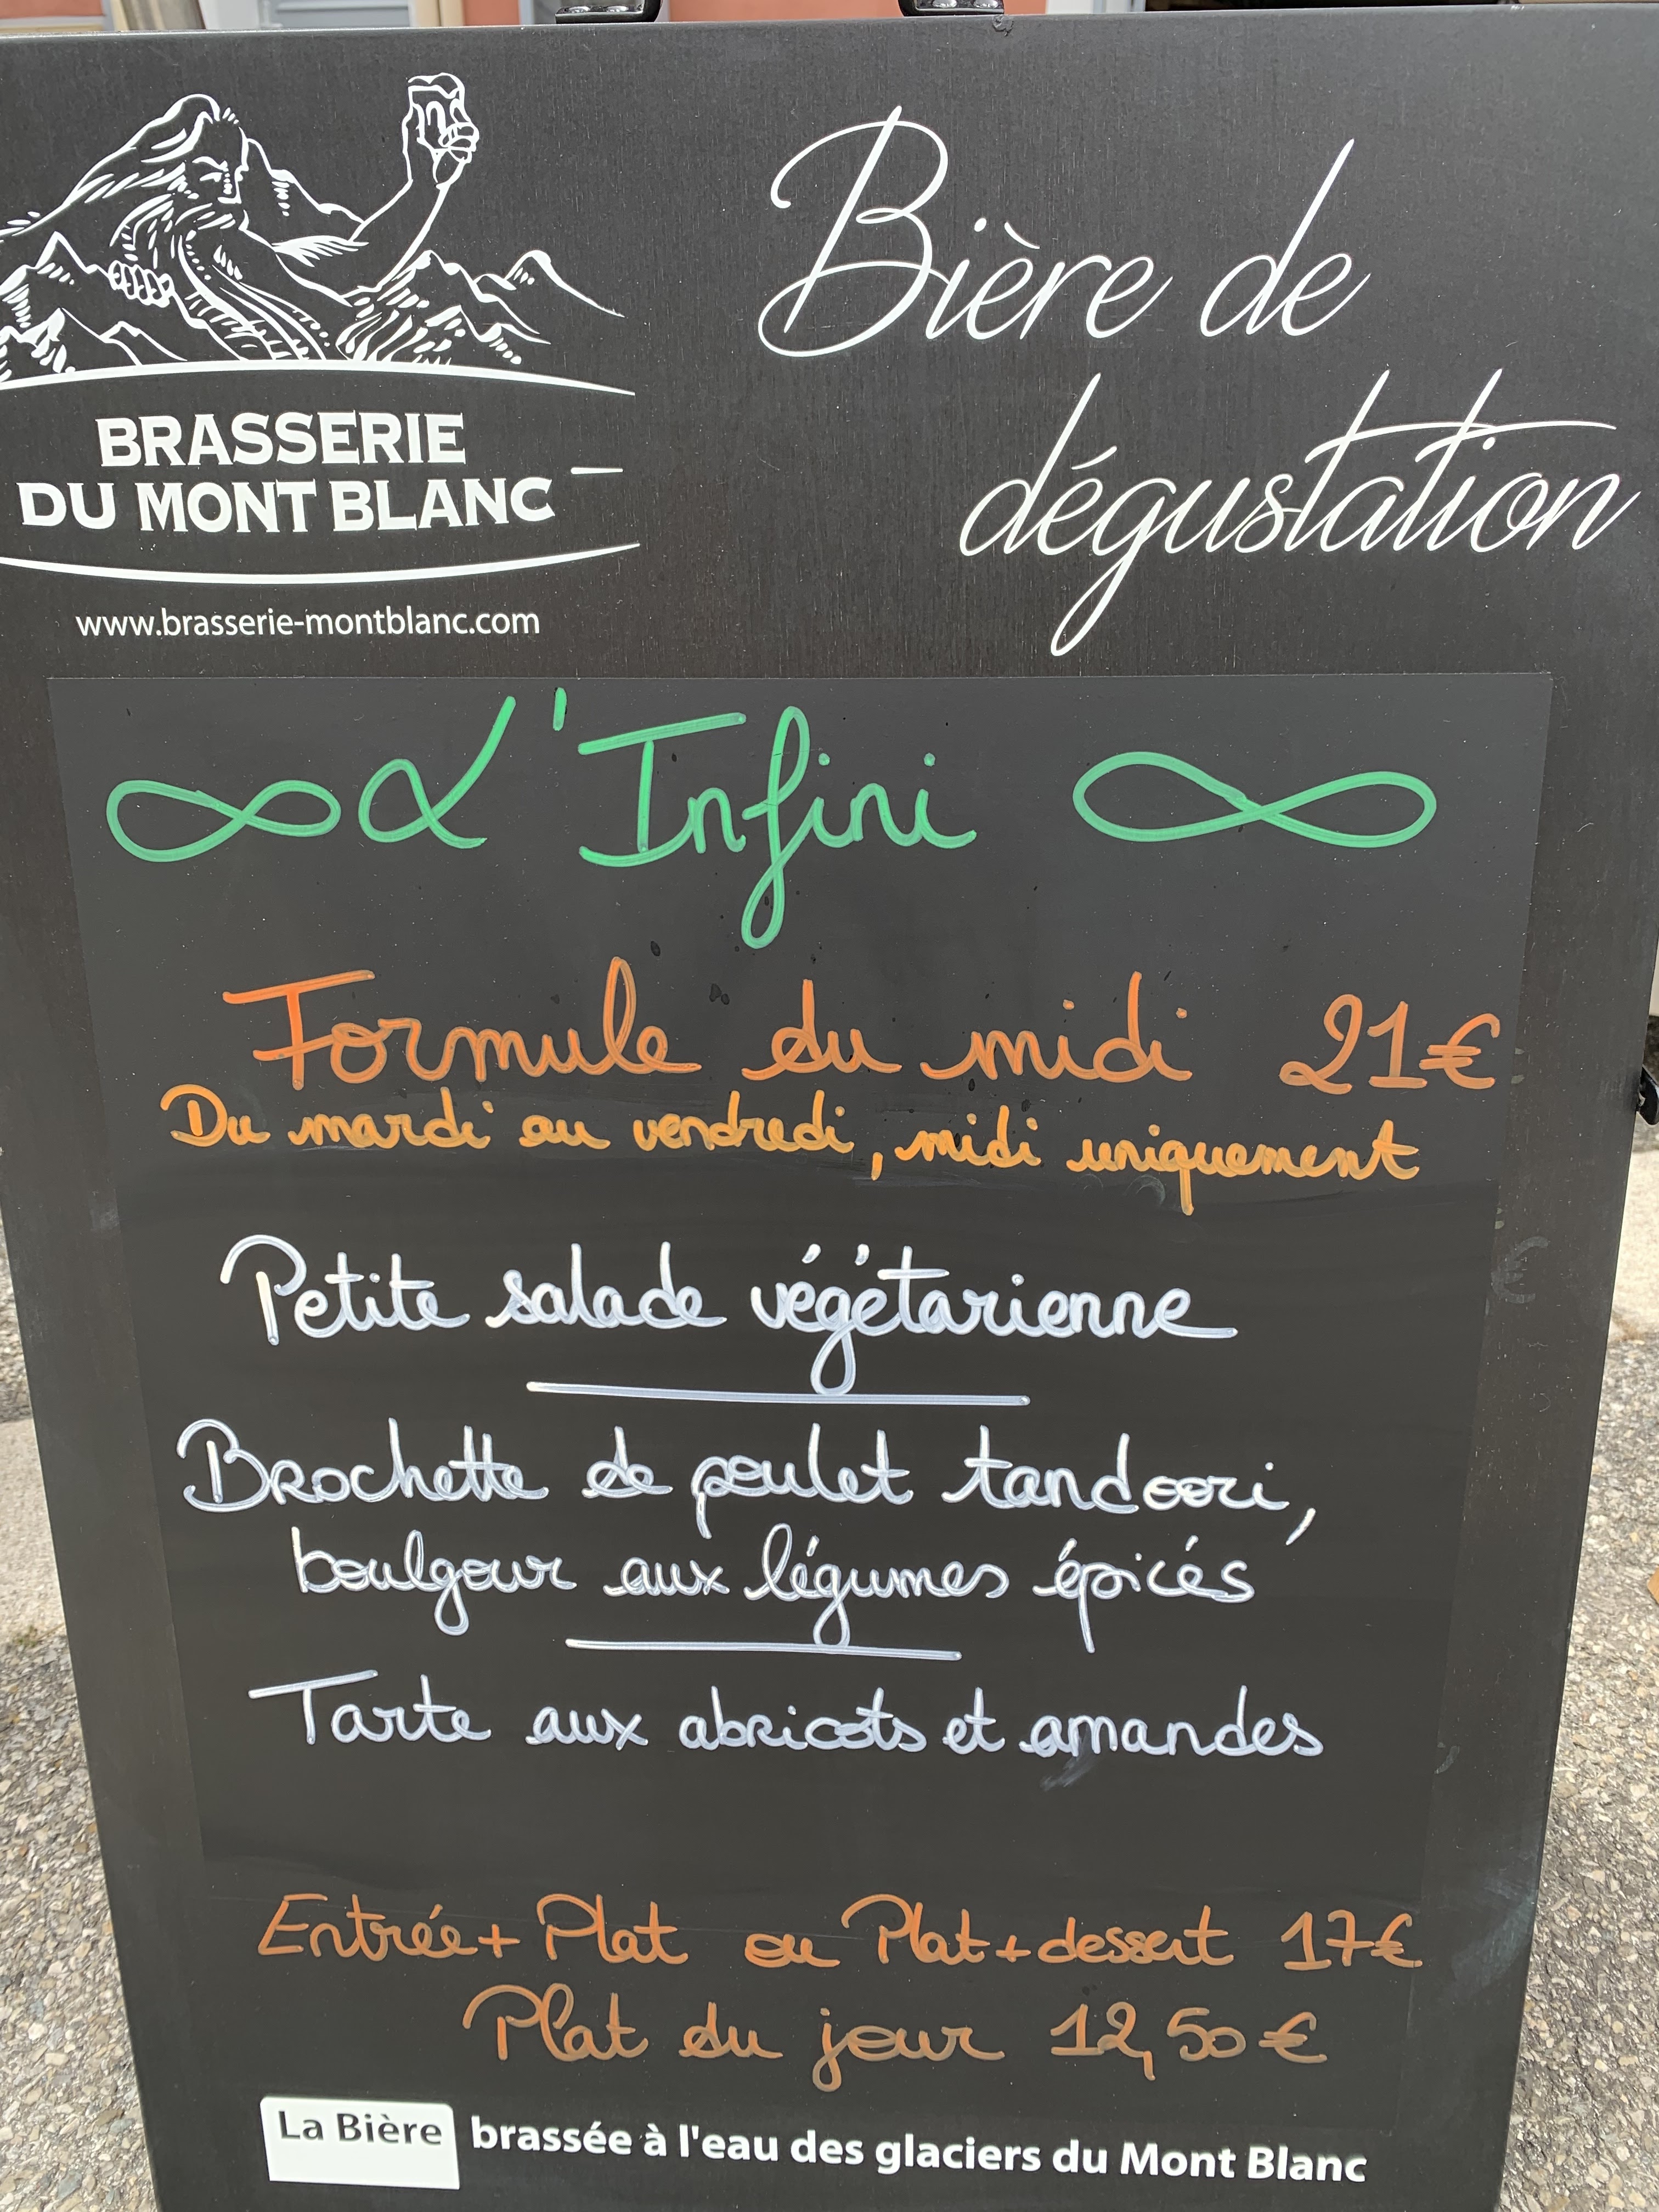 BRASSERIE
DU MONT BLANC
www.brasserie-montblanc.com
Bière de
dégustation
∞ L'Infini ∞
Formule du midi 21€
Du mardi au vendredi, midi uniquement
Petite salade végétarienne
Brochette de poulet tandoori,
boulgour aux légumes épicés
Tarte aux abricots et amandes
Entrée + Plat ou Plat + dessert 17€
Plat du jour 12,50€
La Bière brassée à l'eau des glaciers du Mont Blanc